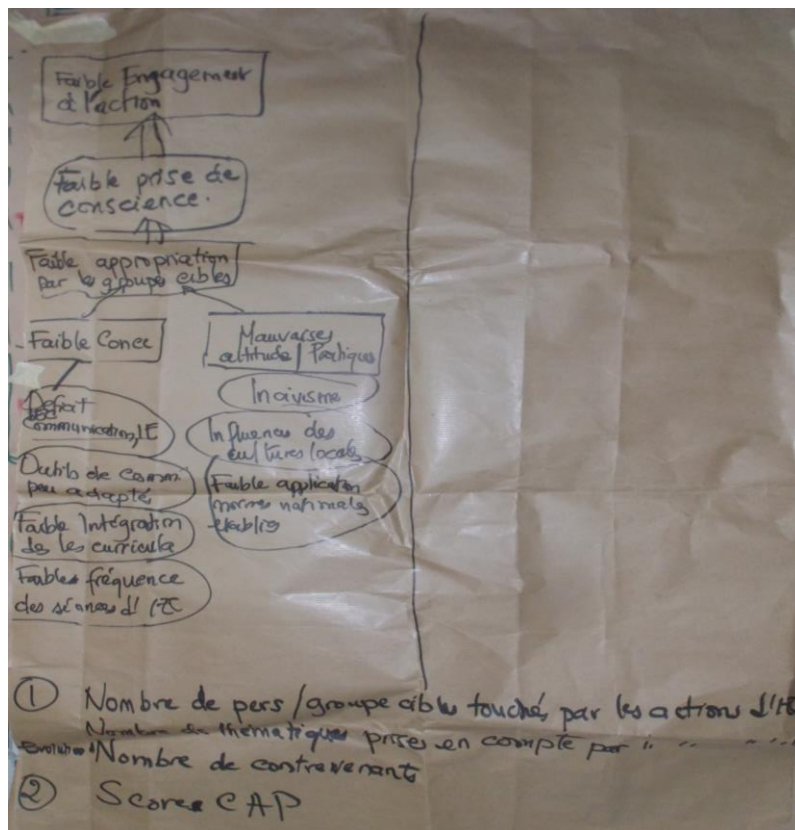 Faible Engagement
à l'action
Faible prise de
conscience.
Faible appropriation
par le groupe cibles
- Faible Conec
Mauvaises
attitude / Pratiques
Incivisme
Déficit
communication, IE
Influence des
cultures locales
Outils de comm
peu adaptés
Faible application
normes nationales
établies
Faible Intégration
ds les curricula
Faibles fréquence
des séances d' IEC
① Nombre de pers / groupe cible touchés par les actions d'
Nombre de thématiques prises en compte par " " "
Nombre de contrevenants
② Scores CAP